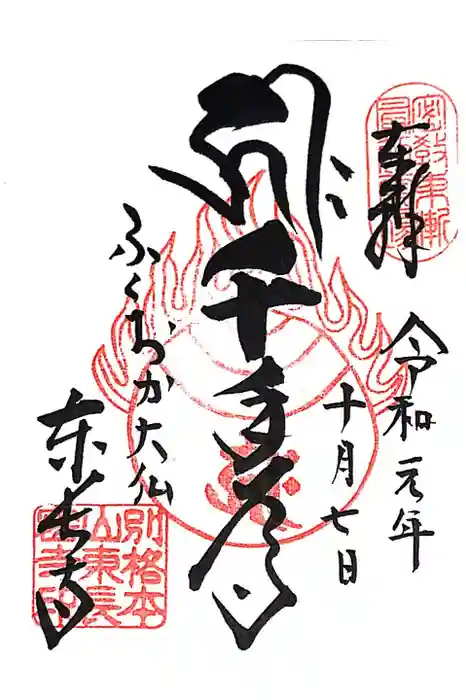 奉拝
令和元年
十月七日
千手尊
ふくおか大仏
東長寺
密教東漸
別格本
山東長